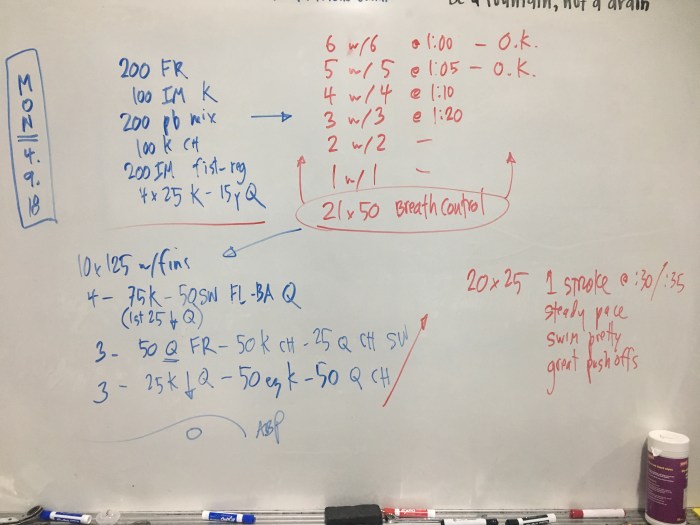 be a fountain, not a drain
MON 4.9.18
200 FR
100 IM K
200 pb mix
100 K CH
200 IM fist-reg
4x25 K - 15y Q
6 w/6 @ 1:00 - O.K.
5 w/5 @ 1:05 - O.K.
4 w/4 @ 1:10
3 w/3 @ 1:20
2 w/2 -
1 w/1 -
21x50 Breath Control
10x125 w/fins
4- 75K - 50SW FL-BA Q
(1st 25 ↓ Q)
3- 50 Q FR - 50 K CH - 25 Q CH SW
3- 25K ↓ Q - 50 ez K - 50 Q CH
ABP
20x25 1 stroke @ :30/:35
steady pace
swim pretty
great push offs